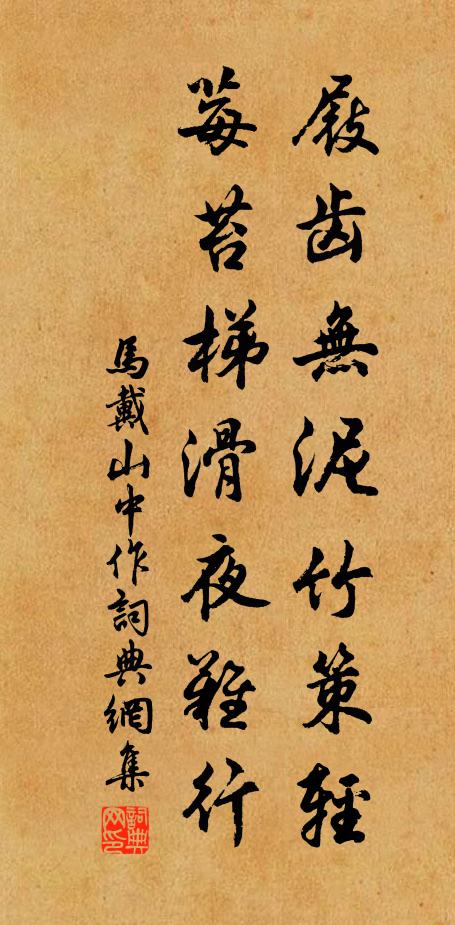 屐齒無泥竹策輕
莓苔梯滑夜難行
馬戴山中作詞典網集
詞典網印